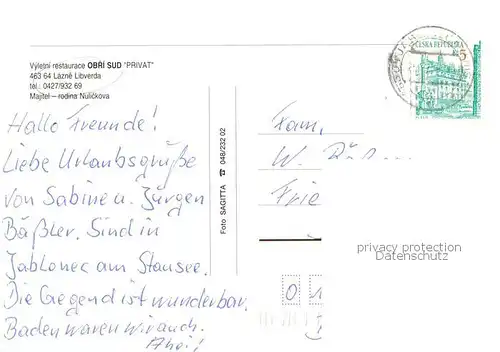 Výletní restaurace OBŘÍ SUD "PRIVAT"
463 64 Lázně Libverda
tel.: 0427/932 69
Majitel – rodina Núličkova
Hallo Freunde!
Liebe Urlaubsgrüße
von Sabine u. Jürgen
Bäßler. Sind in
Jablonec am Stausee.
Die Gegend ist wunderbar.
Baden waren wir auch.
Ahoi!
Foto SAGITTA ☎ 048/232 02
ČESKÁ REPUBLIKA
5
Fam.
W.
Frie
privacy protection
Datenschutz
0 1